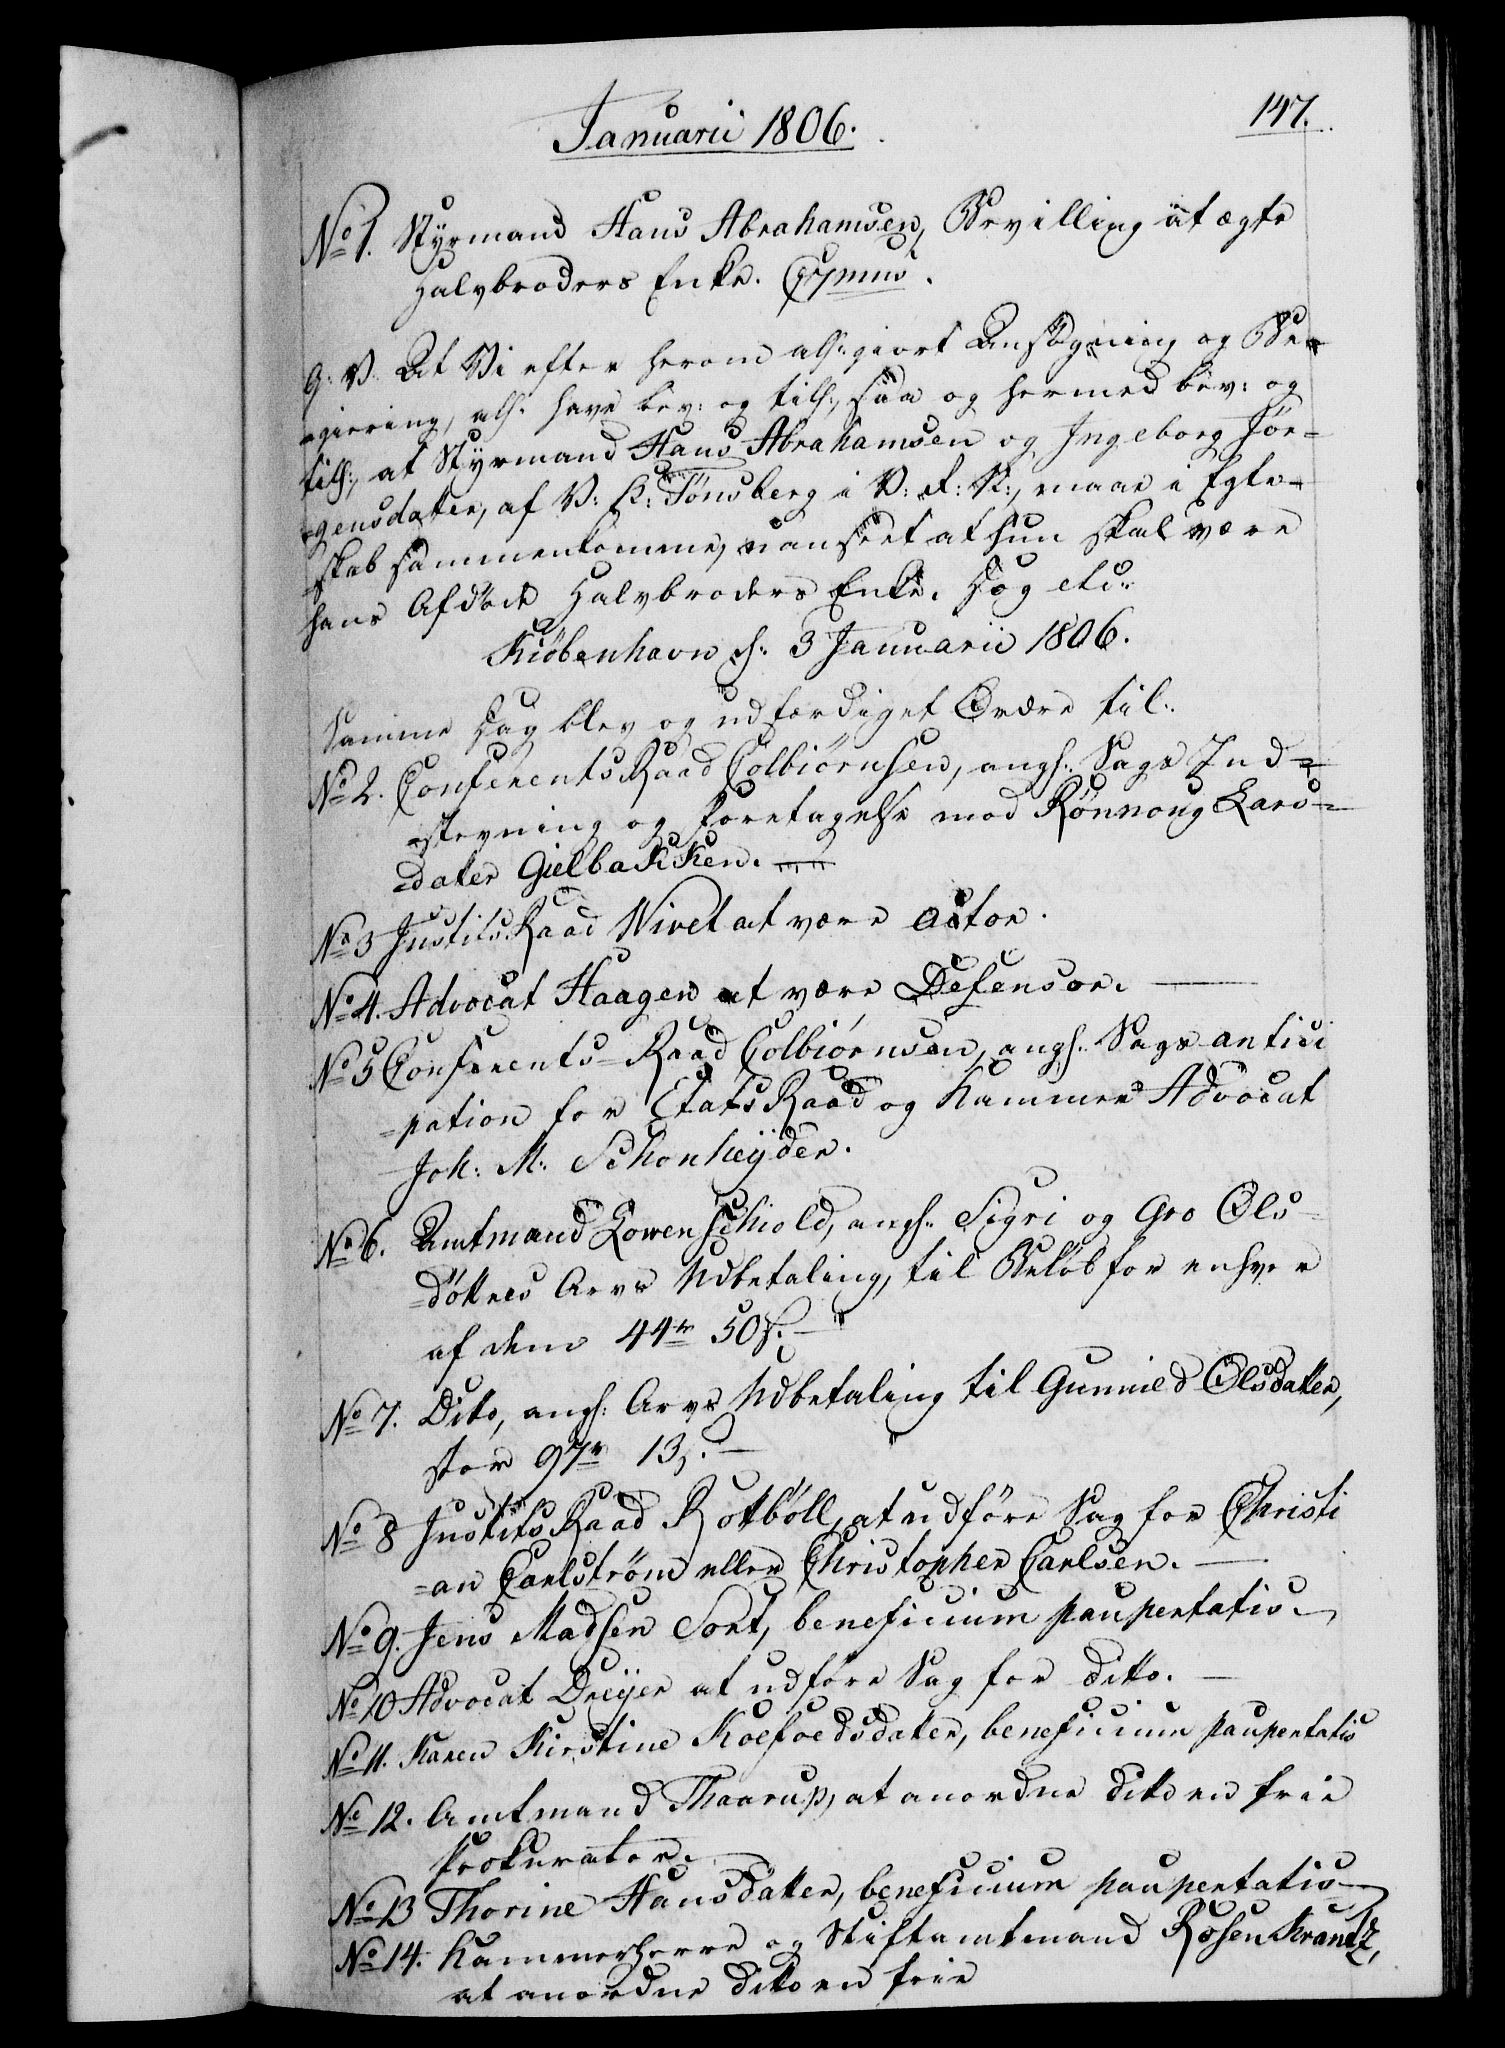 147.
Januarii 1806.
No 1. Styrmand Hans Abrahamsen, Bevilling at ægte
Halvbroders Enke. Gratis.
G: V: At Vi efter herom alh: giort Ansøgning og Be-
-giering, alh: have bev: og tilh:, saa og hermed bev: og
tilh:, at Styrmand Hans Abrahamsen og Ingeborg Jør-
-gensdatter, af V: K: Tønsberg i V: R: N:, maae i Egte-
-skab sammenkomme, uanseet at hun skal være
hans Afdøde Halvbroders Enke. Dog etc:
Kiöbenhavn d: 3 Januarii 1806.
Samme Dag blev og udfærdiget Ordre til:
No 2. ConferentsRaad Colbiørnsen, angh: Sags Ind-
-stevning og Foretagelse mod Rönnoug Lars-
-datter Gielbakken.
No 3 JustitsRaad Wivet at være Actor.
No 4. Advocat Haagen at være Defensor.
No 5 Conferents-Raad Colbiørnsen, angh: Sags antici
-pation for EtatsRaad og Kammer Advocat
Joh: M: Schonheyder.
No 6. Amtmand Løvenschiold, angh: Sigri og Gro Ols-
-döttres Arvs Udbetaling, til Beløb for enhver
af dem 44 r 50 s.
No 7. Dito, angh: Arvs Udbetaling til Gunnild Olsdatter,
stor 97 r 13 s.
No 8 JustitsRaad Rotböll, at udføre Sag for Christi
-an Carlstrøm eller Christopher Carlsen.
No 9. Jens Madsen Sort, beneficium paupertatis.
No 10 Advocat Dreyer at udføre Sag for ditto.
No 11. Karen Kirstine Koefoedsdatter, beneficium paupertatis
No 12. Amtmand Thaarup, at anordne ditto en frie
Prokurator.
No 13 Thorine Hansdatter, beneficium paupertatis
No 14. Kammerherre og Stiftamtmand RosenKrantz,
at anordne ditto en frie